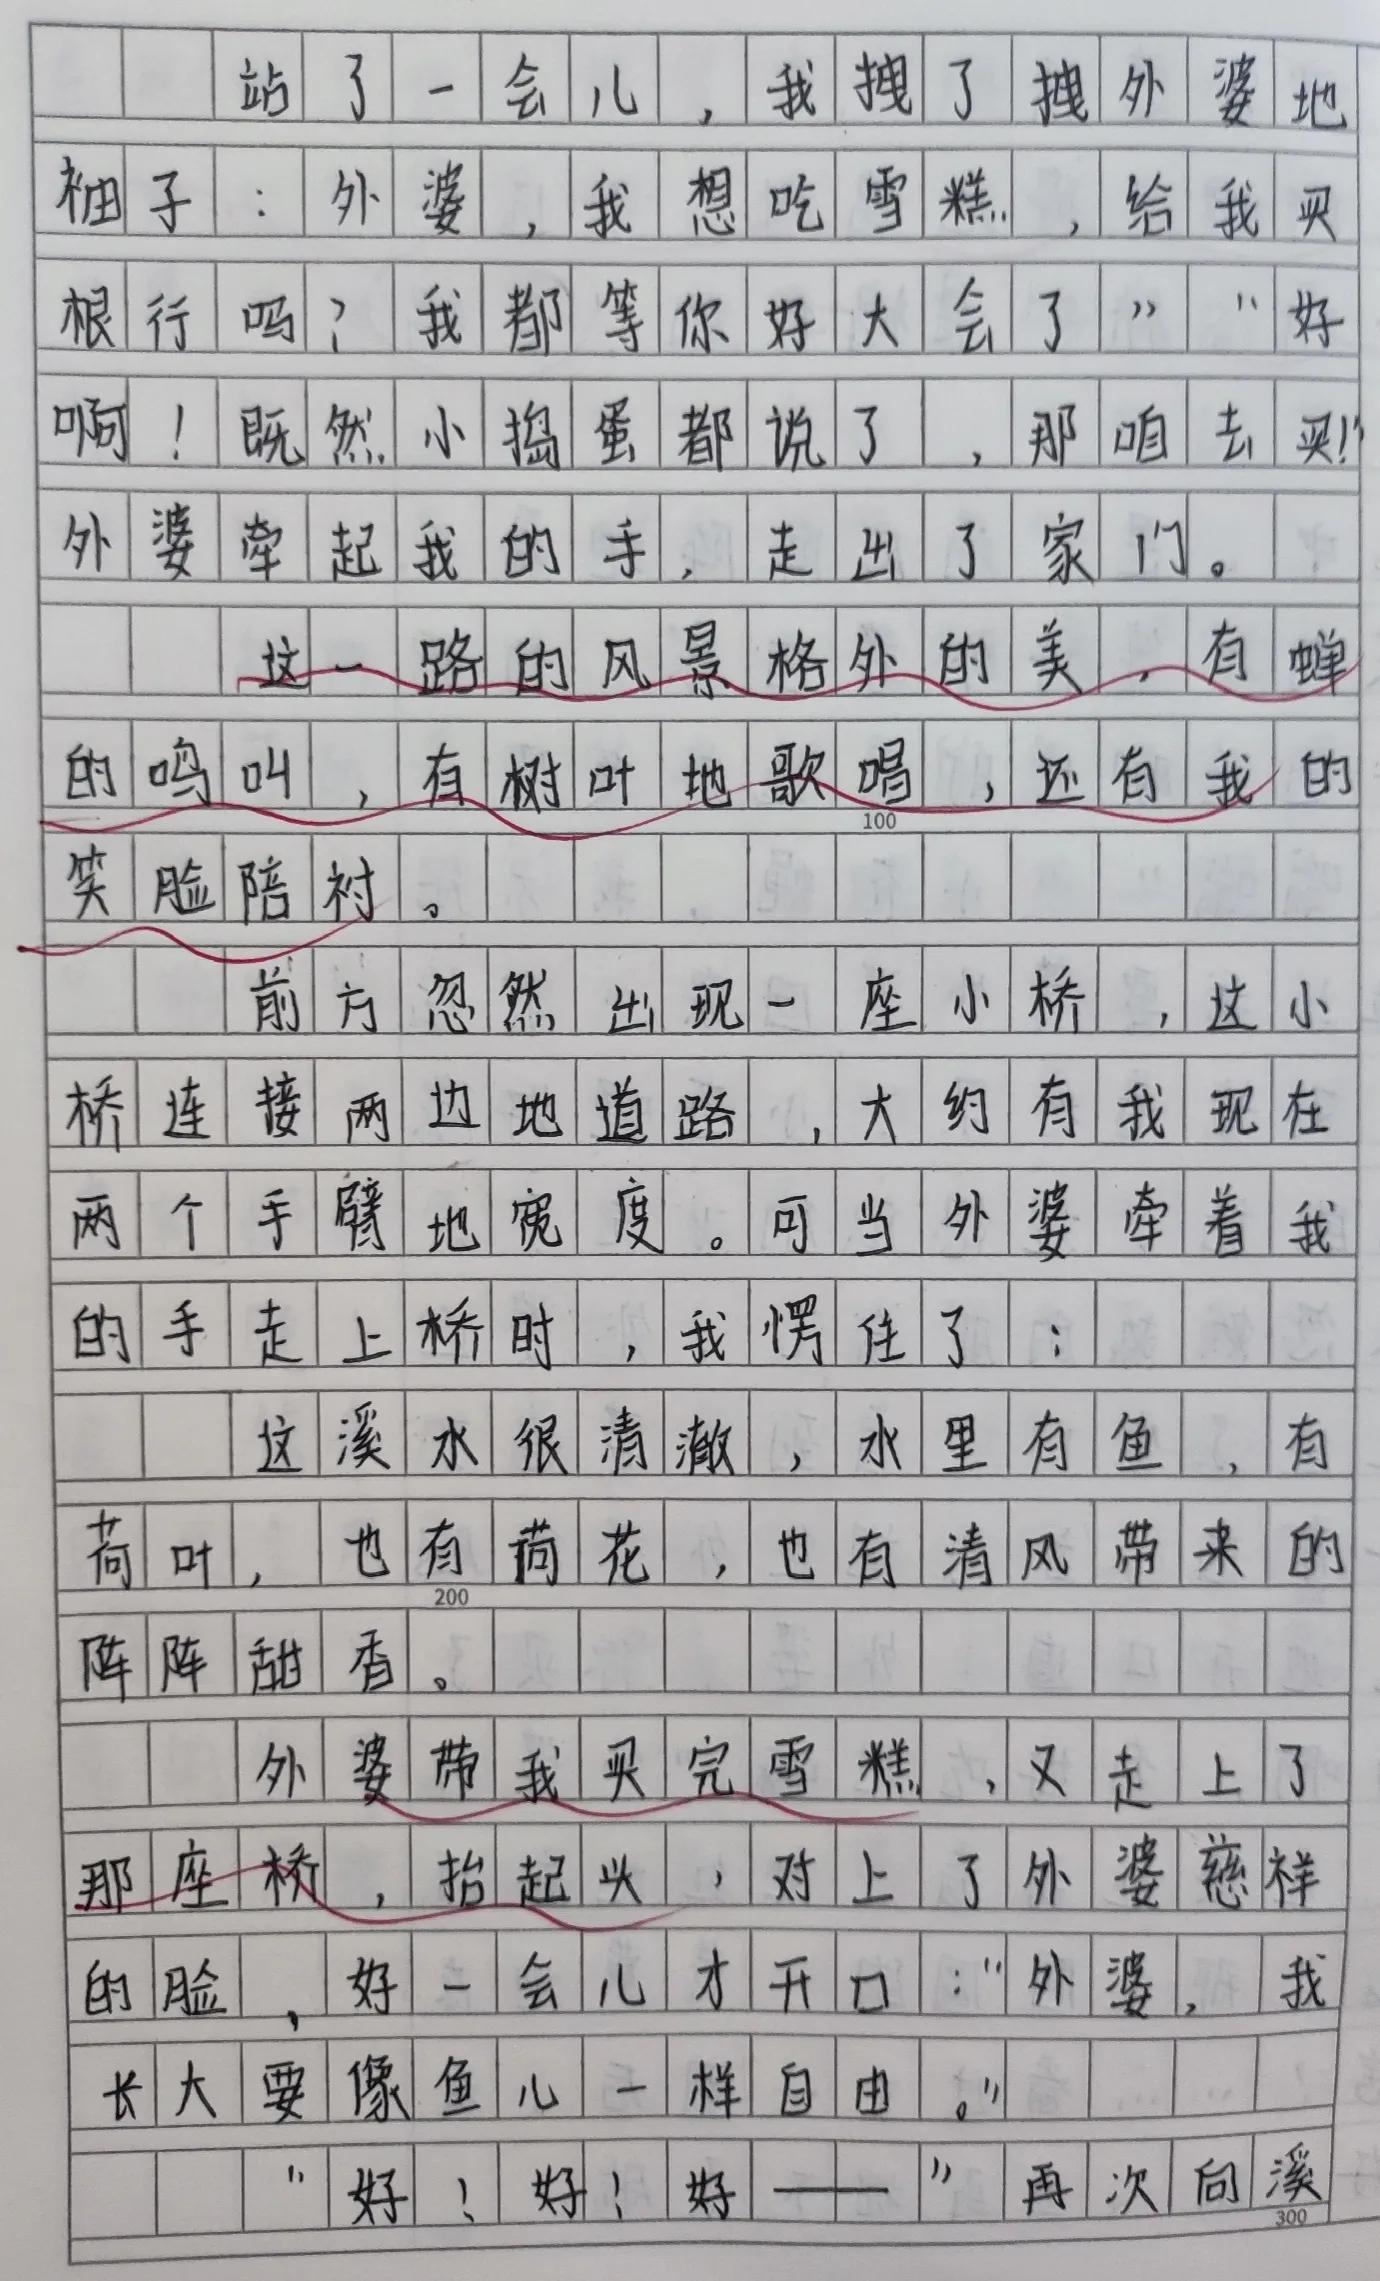 站了一会儿，我拽了拽外婆地
袖子：外婆，我想吃雪糕，给我买
根行吗？我都等你好大会了”“好
啊！既然小捣蛋都说了，那咱去买！”
外婆牵起我的手，走出了家门。
这一路的风景格外的美，有蝉
的鸣叫，有树叶地歌唱，还有我的
100
笑脸陪衬。
前方忽然出现一座小桥，这小
桥连接两边地道路，大约有我现在
两个手臂地宽度。可当外婆牵着我
的手走上桥时，我愣住了：
这溪水很清澈，水里有鱼，有
荷叶，也有荷花，也有清风带来的
200
阵阵甜香。
外婆带我买完雪糕，又走上了
那座桥，抬起头，对上了外婆慈祥
的脸，好一会儿才开口：“外婆，我
长大要像鱼儿一样自由。”
“好！好！好——”再次向溪
300